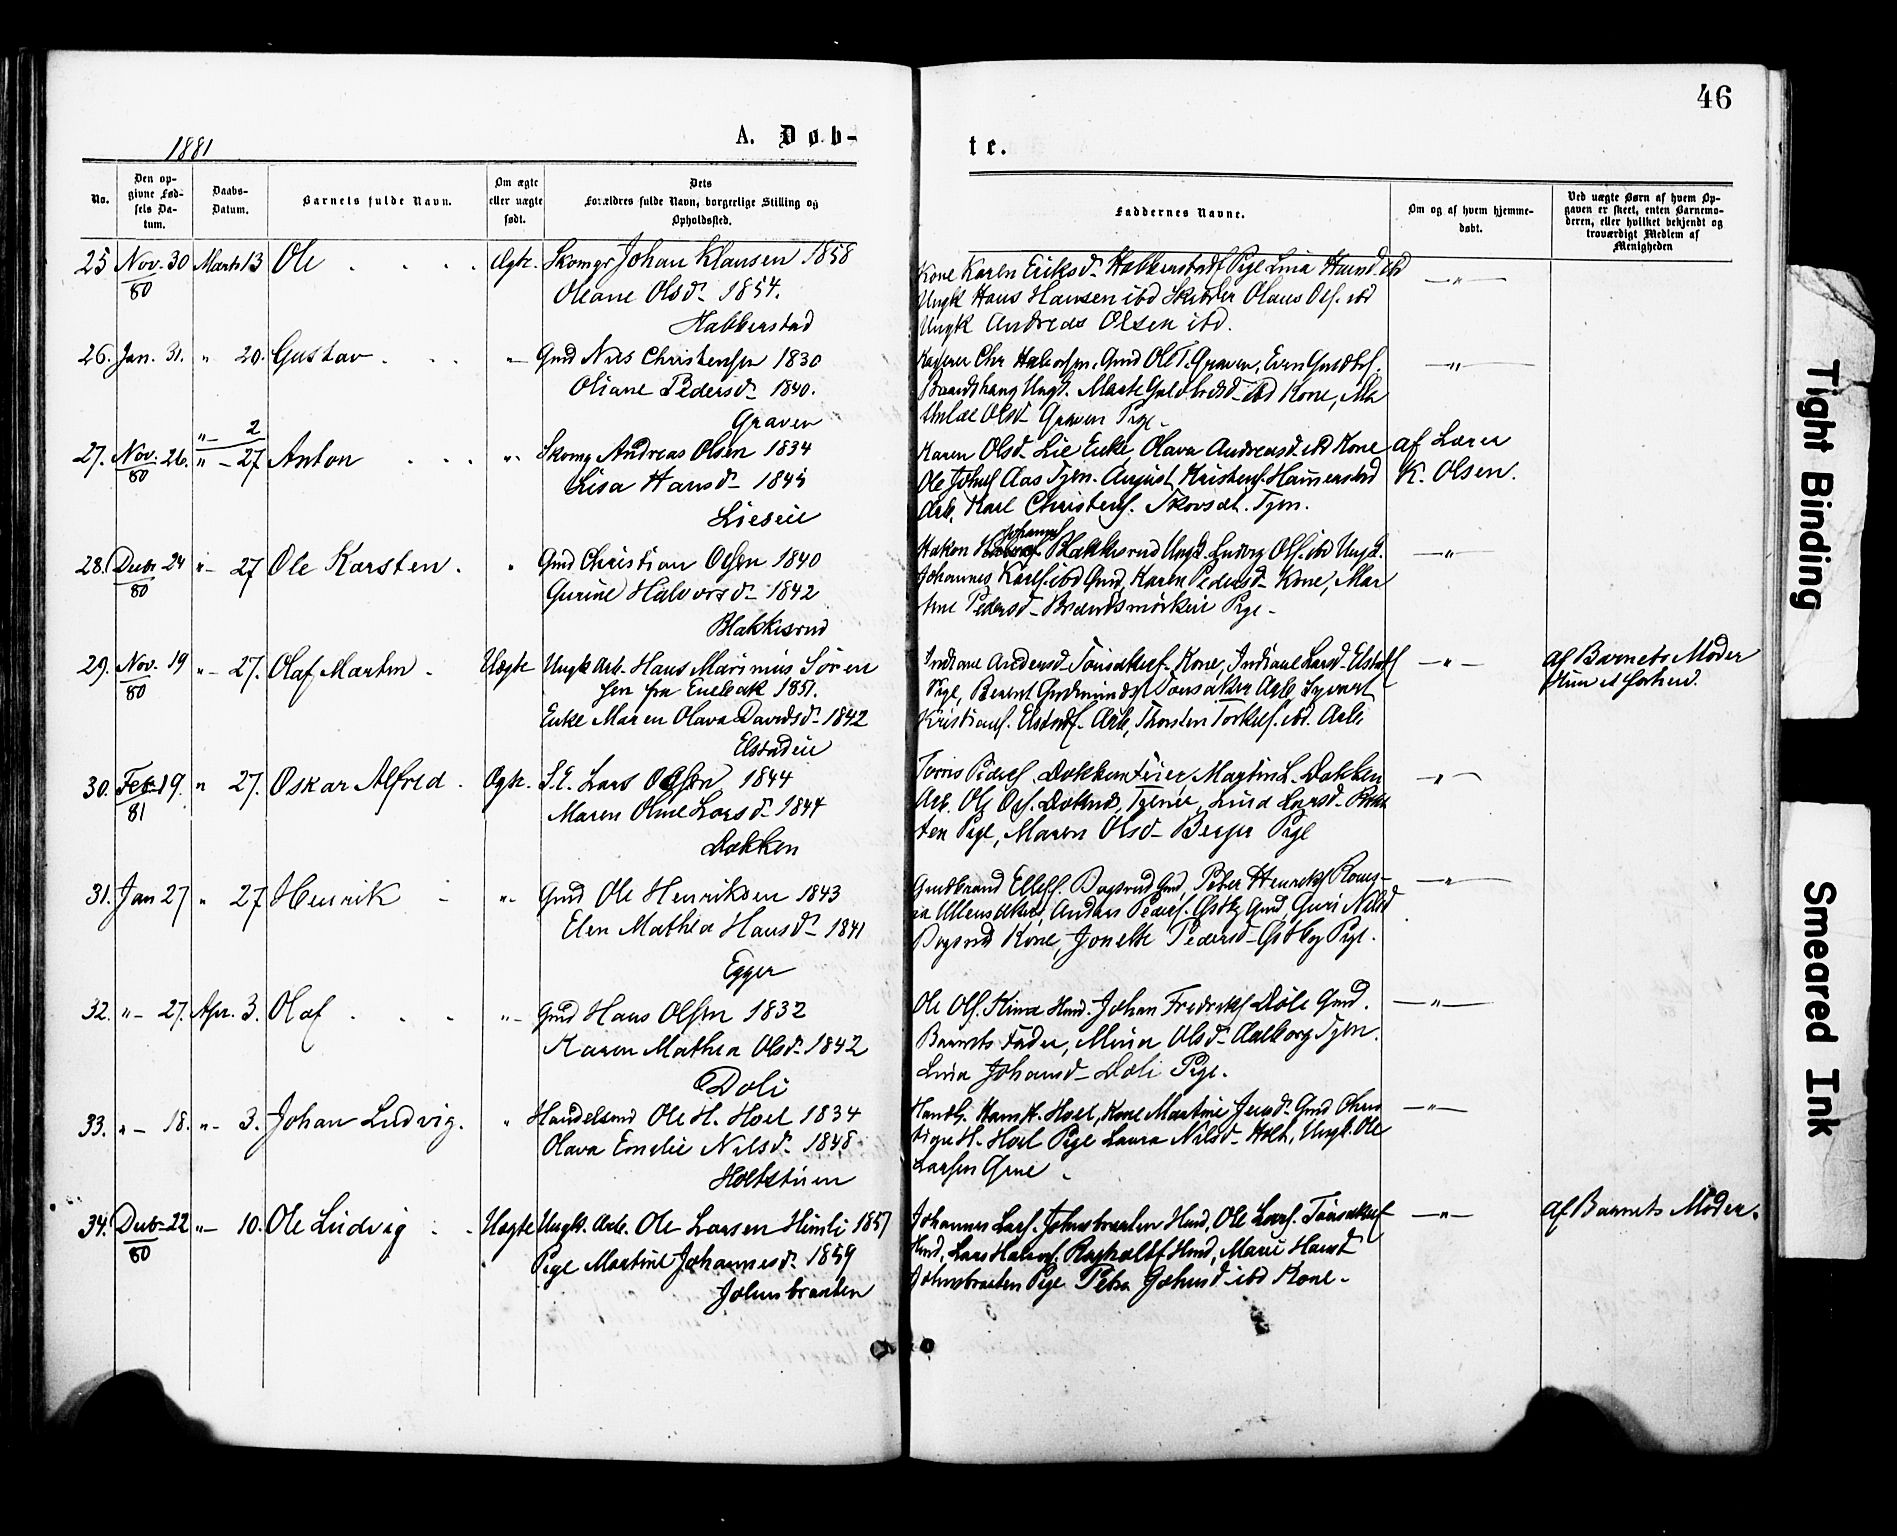 46
1881
A. Døb-
te.
No.
Den op-
givne Fød-
sels Da-
tum.
Daabs-
Datum.
Barnets fulde Navn.
Om ægte
eller uægte
født.
Dets
Forældres fulde Navn, borgerlige Stilling og
Opholdssted.
Faddernes Navne.
Om og af hvem hjemme-
døbt.
Ved uægte Børn af hvem Op-
gaven er skeet, enten Barnemo-
deren, eller hvilket bekjendt og
troværdigt Medlem af
Menigheden
25 Nov. 30 Marts 13 Ole Ægte. Skomgr Johan Klausen 1858
80
Oleane Olsd. 1854.
Habberstad
Kone Karen Eriksd. Habberstad Pige Lina Hansd. ibd
Ungk Hans Hansen ibd Skræder Olaus Ols. ibd
Ungk Andreas Olsen ibd.
26. Jan. 31. " 20. Gustav " Gmd Nils Christensen 1830
Oliane Pedersd. 1840.
Graven
Chr Halvorsen, Gmd Ole T. Graven, Even Guldbs.
Brandhaug Ungk. Marte Guldbrdsd. ibd Kone, Ma
thilde Olsd Graven Pige.
" 2
27. Nov. 26. " 27 Anton " Skomg Andreas Olsen 1834
80
Lisa Hansd. 1845
Lieseie
Karen Olsd. Lie Enke, Olava Andreasd. ibd Kone
Ole Johns Aas Tjen. August Kristens. Hammerstad
Arb. Karl Christens. Skovsdt. Tjen.
af Lærer
K. Olsen.
28. Decbr 24 " 27 Ole Karsten. " Gmd Christian Olsen 1840
80
Gurine Halvorsd. 1842
Blakkisrud
Johanns
Hakon Blakkisrud Ungk. Ludvig Ols. ibd Ungk.
Johannes Karls. ibd Gmd, Karen Pedersd. Kone, Mar
thne Pedersd. Brændsmörkeie Pige.
29. Nov. 19 " 27. Olaf Martin. Uægte Ungk Arb. Hans Marinius Sören
80
sen fra Enebak 1851.
Enke Maren Olava Davidsd. 1842
Elstadeie
Indiane Andersd. Tönsakers. Kone, Indiane Larsd. Elstad
Pige, Berent Gudmunds Tönsaker Arb, Syvert
Kristians. Elstad. Arb, Thorsten Torkels. ibd. Arb.
af Barnets Moder
30. Feb. 19. " 27. Oskar Alfred. Ægte. S.E. Lars Olsen 1844
81
Maren Oline Larsd. 1844
Dokken
Peders. Dokken Feier, Martin L. Dokken
Arb. Ole Ols. Doknes, Tjener, Lina Larsd.
ten Pige, Maren Olsd. Berger Pige
31. Jan 27 " 27 Henrik " Gmd Ole Henriksen 1843
Elen Mathea Hansd. 1841
Egger
Guldbrand Ellefs. Bogsrud Gmd, Peter Henriks
Ullensaker, Anders Peders. Gsöby Gmd, Guri Nilsd
Bogsrud Kone, Jonette Pedersd. Gsöby Pige.
32. " 27. Apr. 3. Olaf " Gmd Hans Olsen 1832
Karen Mathea Olsd. 1842
Doli
Ole Ols. Kina Hmd. Johan Fredriks Döle Gmd.
Barnets Fader, Mina Olsd. Aalborg Tjen.
Lina Johansd. Doli Pige.
33. " 18. " 3. Johan Ludvig. " Handelsmd Ole H. Hoel 1834
Olava Emelie Nilsd. 1848
Holtstuen
Handls. Hans H. Hoel, Kone Martine Jensd. Gmd Chris
H. Hoel Pige Laura Nilsd. Holt, Ungk. Ole
Larsen Grue.
34. Decbr 22 " 10. Ole Ludvig Uægte Ungk. Arb. Ole Larsen Himli 1857
80
Pige Martine Johannesd. 1859
Johnsbraaten
Johannes Lars. Johnsbraaten Hmd, Ole Lars. Tönsaker
Hmd, Lars Halvors. Rogholt Hmd, Marie Hansd
Johnsbraaten Pige Petra Johnsd. ibd Kone.
af Barnets Moder.
Tight Binding
Smeared Ink